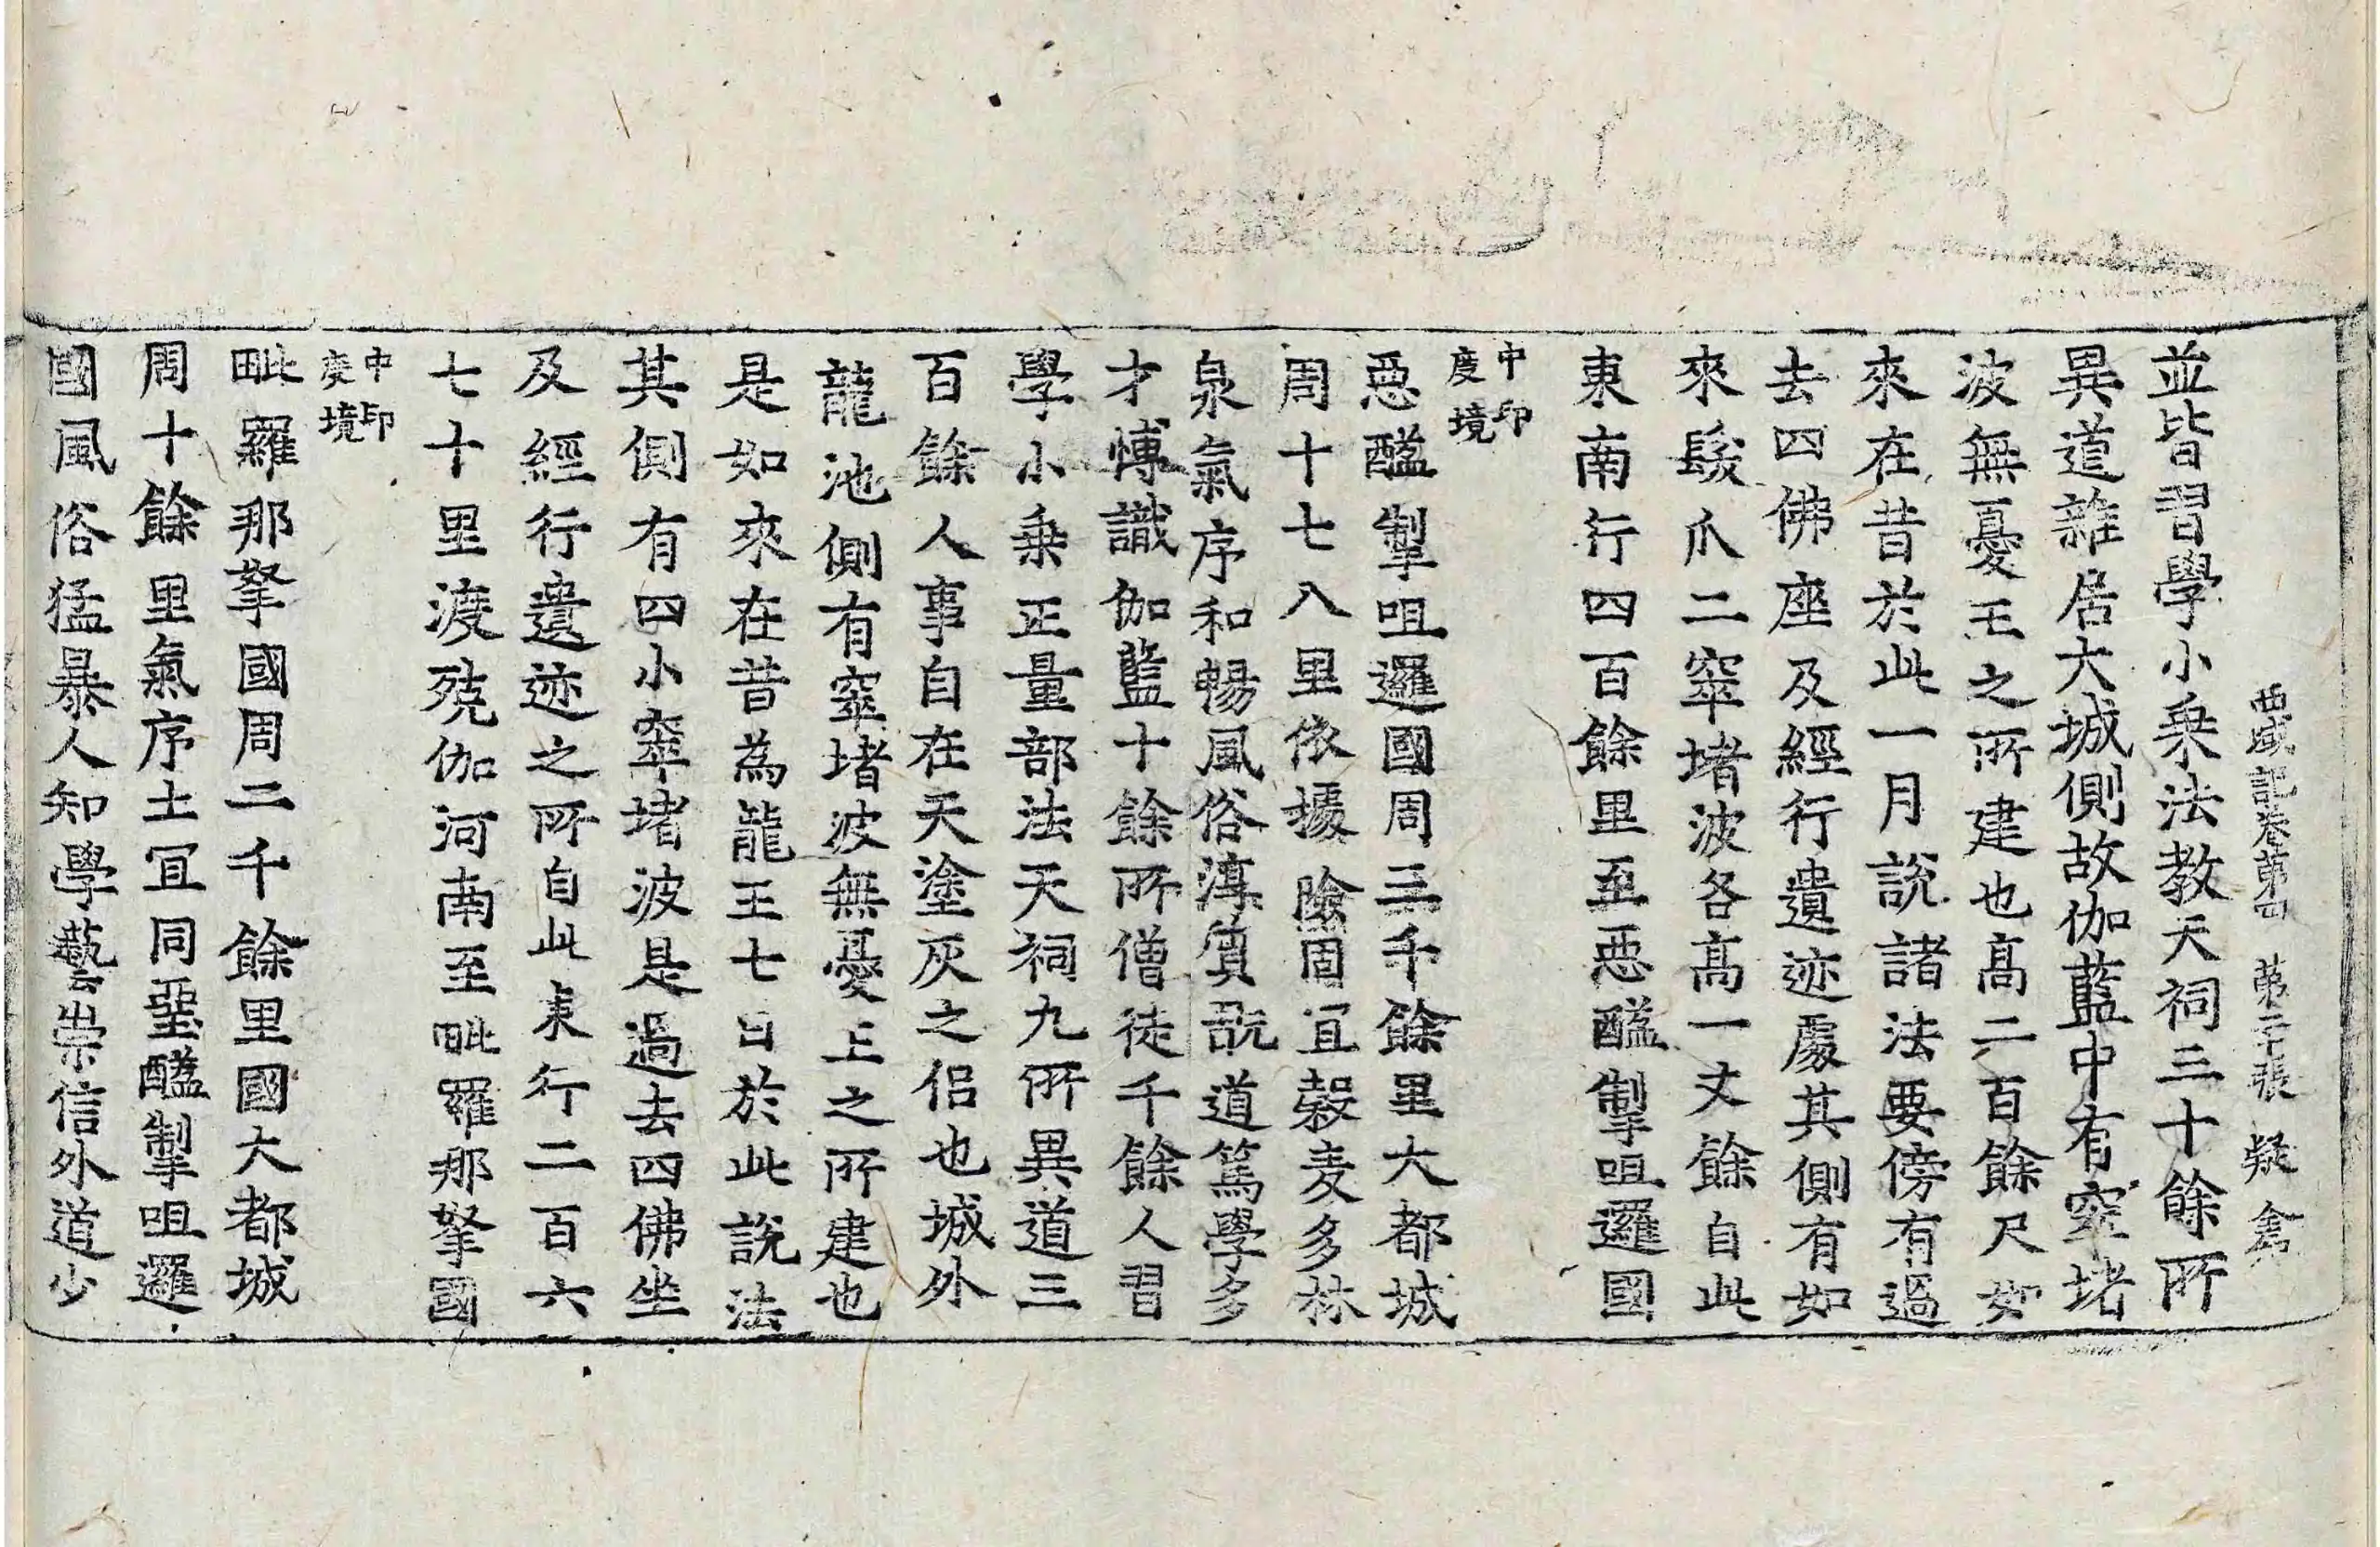 西域記卷第四　第二十張　疑　禽
並皆習學小乘法教天祠三十餘所
異道雜居大城側故伽藍中有窣堵
波無憂王之所建也高二百餘尺如
來在昔於此一月說諸法要傍有過
去四佛座及經行遺迹處其側有如
來髮爪二窣堵波各高一丈餘自此
東南行四百餘里至惡醯掣咀邏國
中印
度境
惡醯掣咀邏國周三千餘里大都城
周十七八里依據險固宜穀麦多林
泉氣序和暢風俗淳質翫道篤學多
才博識伽藍十餘所僧徒千餘人習
學小乘正量部法天祠九所異道三
百餘人事自在天塗灰之侶也城外
龍池側有窣堵波無憂王之所建也
是如來在昔為龍王七日於此說法
其側有四小窣堵波是過去四佛坐
及經行遺迹之所自此東行二百六
七十里渡殑伽河南至毗羅那拏國
中印
度境
毗羅那拏國周二千餘里國大都城
周十餘里氣序土宜同堊醯掣咀邏
國風俗猛暴人知學藝崇信外道少